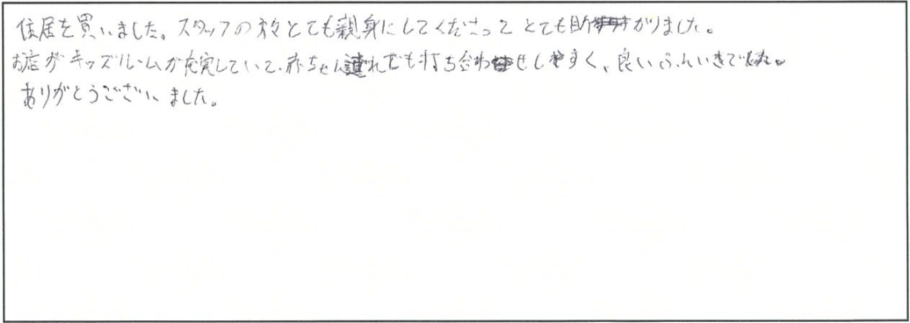 住居を買いました。スタッフの方々とても親身にしてくださってとても助かりました。
お店がキッズルームが充実していて、赤ちゃん連れでも打ち合わせしやすく、良いふんいきでした。
ありがとうございました。